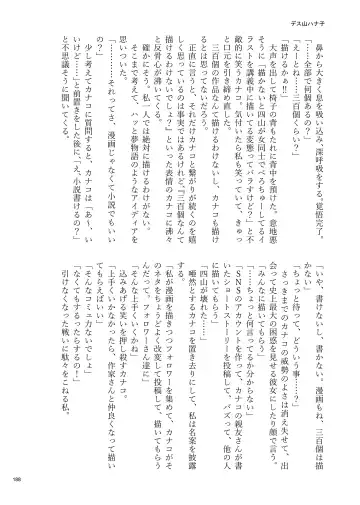 デス山ハナ子
鼻から大きく息を吸い込み、深呼吸をする。覚悟完了。
「……全部で何個あるの？」
「えっ……三百個くらい？」
「描けるかぁ!!」
大声を出して椅子の背もたれに背中を預けた。意地悪
「描かないと四山が女同士でべろちゅーしてるイ
ラストを講義中に描いてる変態ってバラすけど？」と不
敵的に笑うカナコに気付いたら私も笑っていて、きゅっ
と口元を引き締め直した。
三百個の作品なんて描けるわけないし、カナコも描け
るとは思ってないだろう。
正直に言うと、それだけカナコと繋がりが続くのを嬉
しく思っているのは事実ではあるけれど『三百個なんて
描けるわけないでしょ？』といった表情のカナコに沸々
と反骨心が沸いてくる。
確かにそう。私一人では絶対に描けるわけない。でも
もしかしたら。ハッと夢物語のようなアイディアを
思いついた。
「…………それってさ、漫画じゃなくて小説でもいい
の？」
少し考えてカナコに質問すると、カナコは「あ〜、い
いけど……」と前置きをした後に、「え、小説書けるの？」
と不思議そうに聞いてくる。
「いや、書けないし、書かない。漫画もね、三百個は描
かない」
「ちょっと待って、どういう事……？」
さっきまでのカナコの威勢のよさは消え失せて、出
会って史上最大の困惑を見せる彼女にしたり顔で言う。
「みんなに描いてもらう」
「……ちょっと何言ってるか分かんない」
「SNSのアカウントを作って、カナコの親友さんが書
いたショートストーリーを投稿して、バズって、他の人
に描いてもらう」
「四山が壊れた……」
唖然とするカナコを置き去りにして、私は名案を披露
する。
「私が漫画を描きつつフォロワーを集めて、カナコがそ
のネタをちょうどよく改変して投稿して、描いてもらう
んだって。フォロワーさん達に」
「そんな上手くいくかね」
込みあげる笑いを押し殺すカナコ。
「上手くいかなかったら、作家さんと仲良くなって描い
てもらえばいい」
「そんなコミュ力ないでしょ」
「なくてもするったらするの！」
引けなくなった戦いに駄々をこねる私。
188